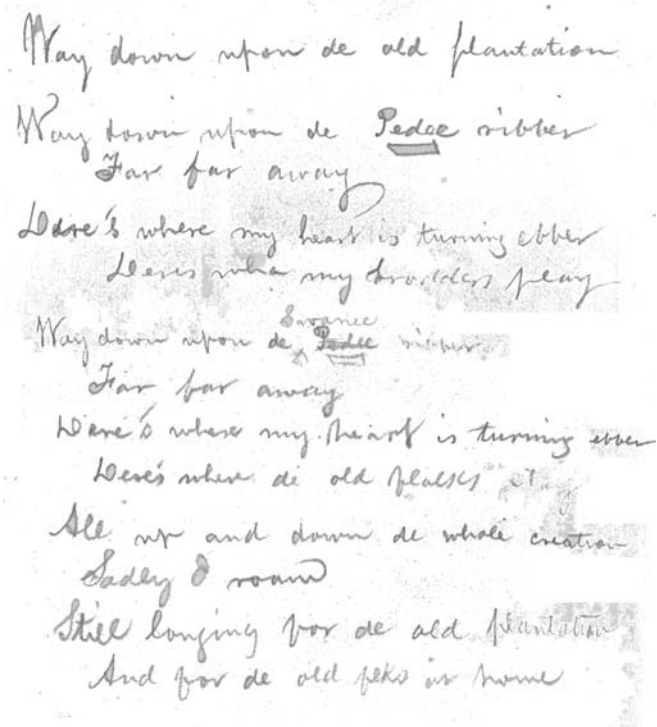 Way down upon de old plantation
Way down upon de Pedee ribber
Far far away
Dere's where my heart is turning ebber
Deres wha my brodders play
Way down upon de Swanee Pedee ribber
Far far away
Dere's where my heart is turning ebber
Dere's where de old
All up and down de whole creation
Sadly I roam
Still longing for de old plantation
And for de old folks at home